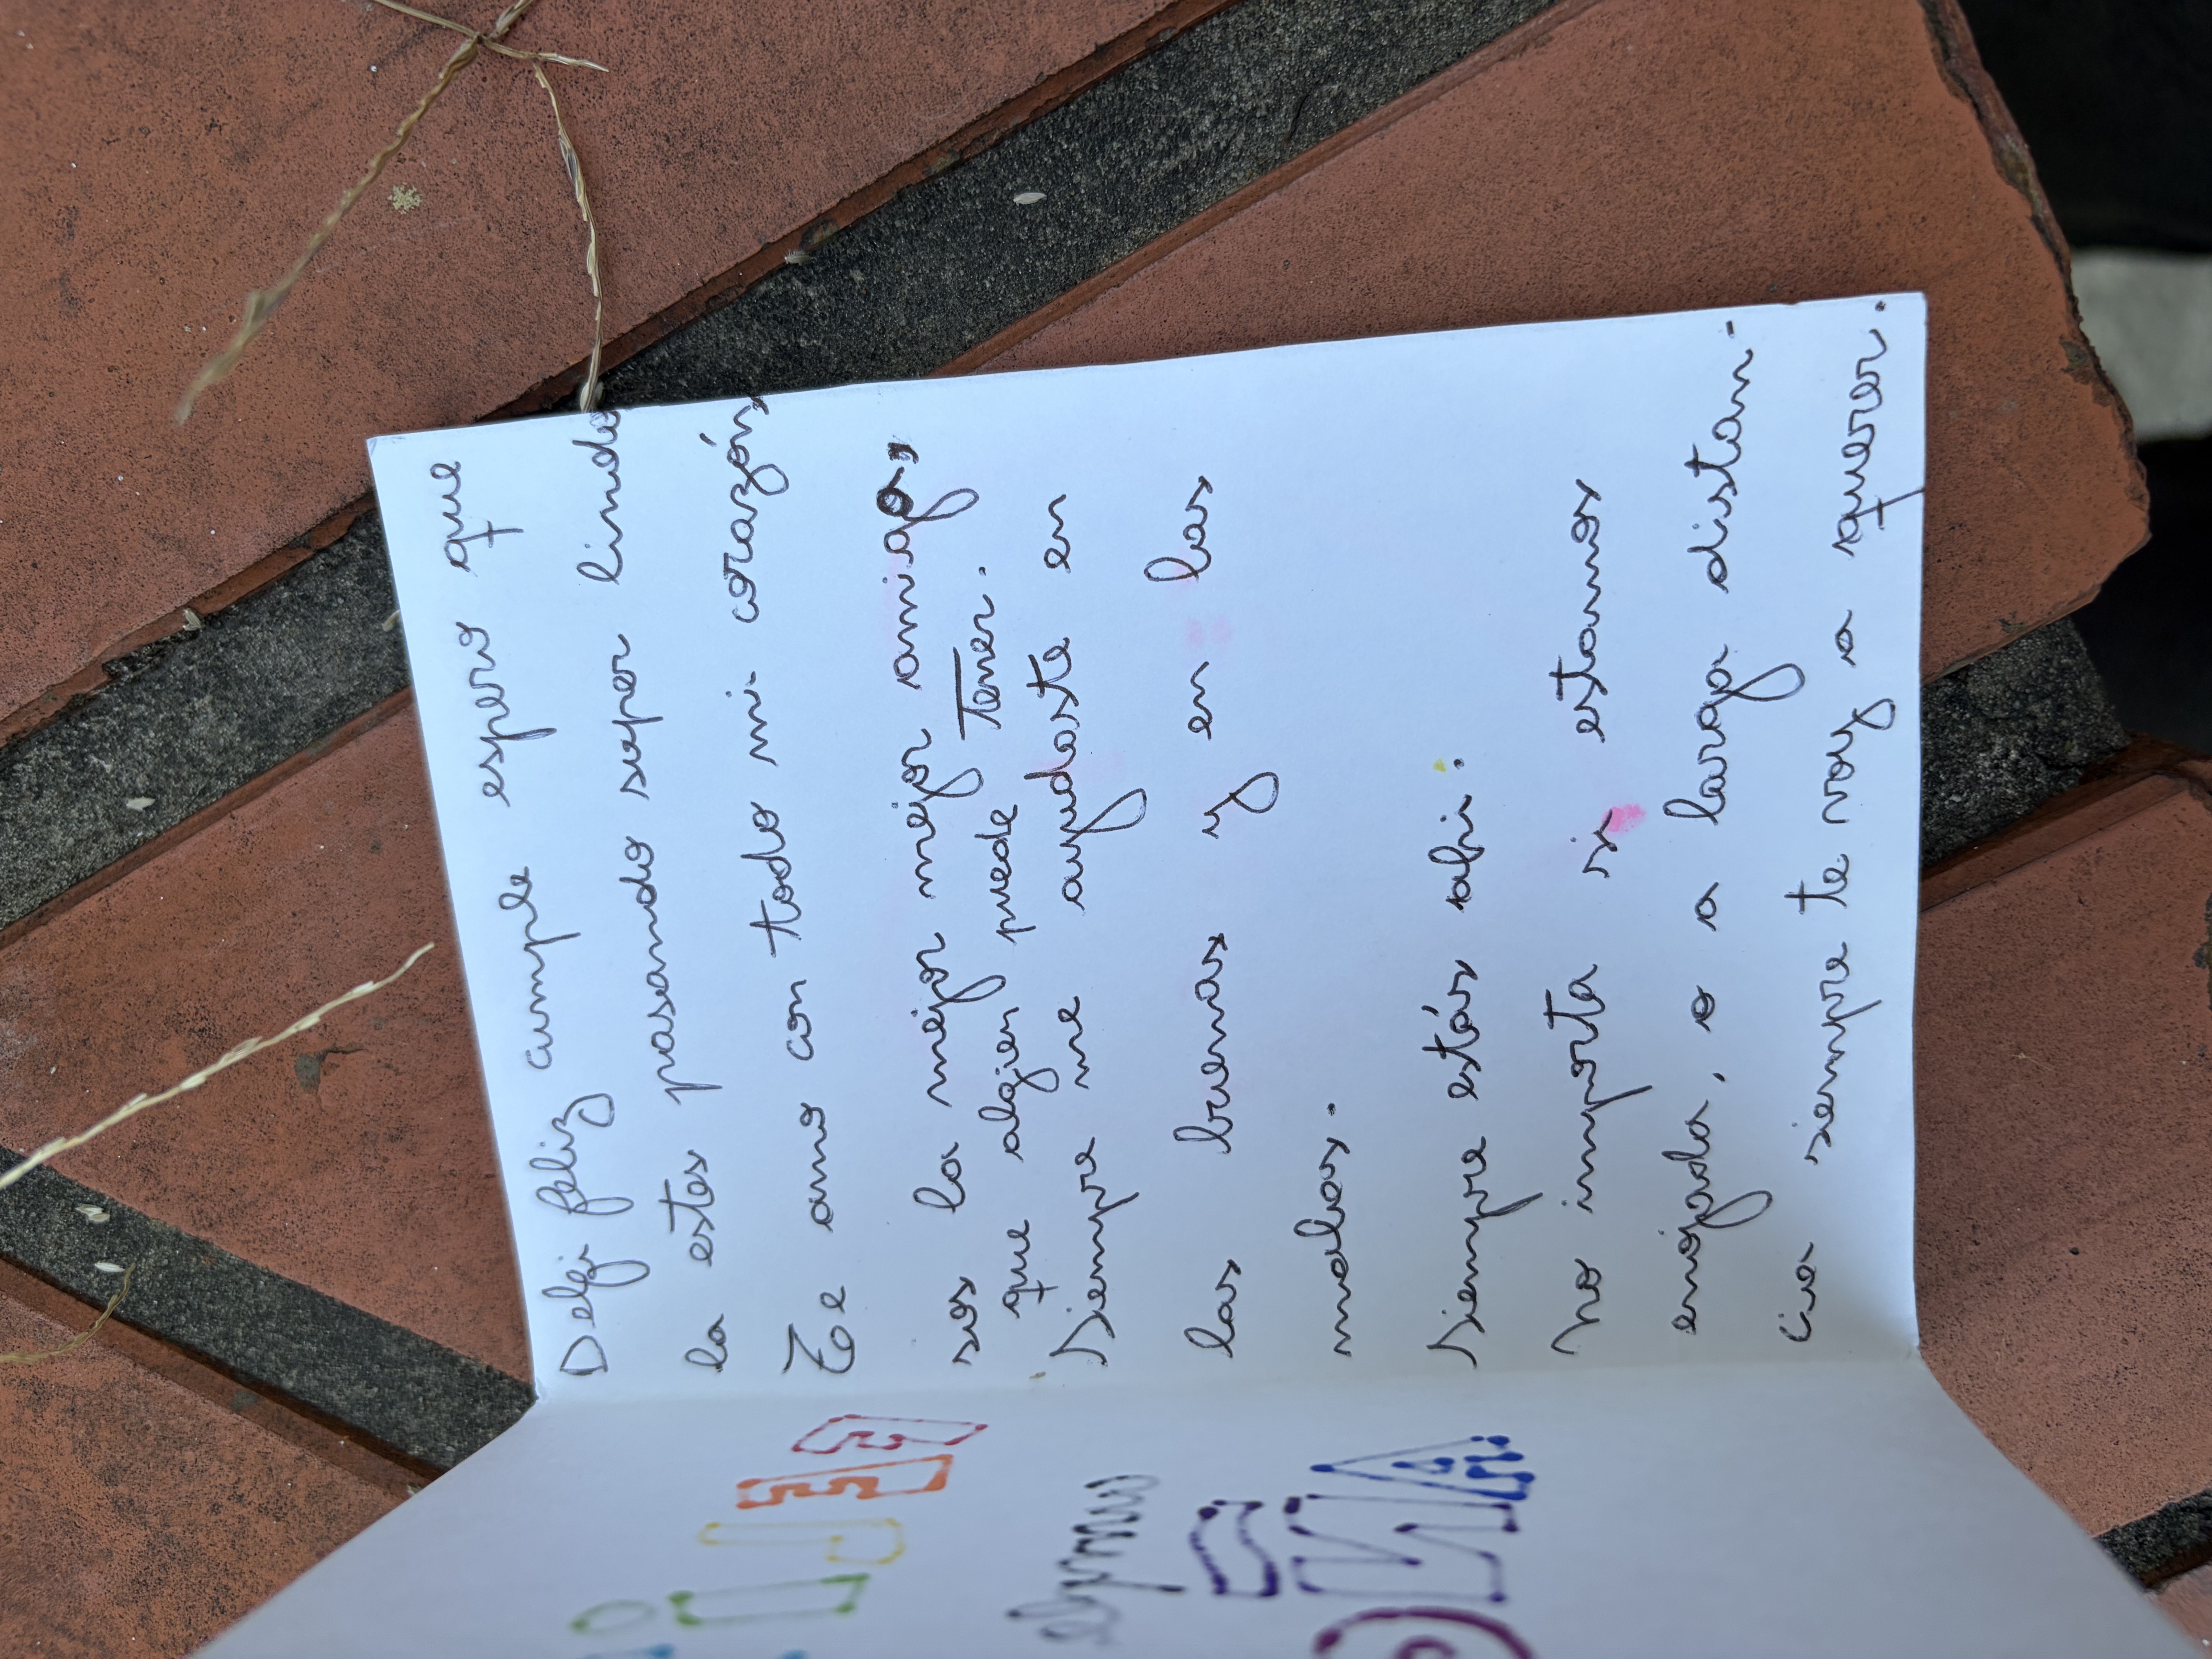 Delfi feliz cumple espero que
la estes pasando super lindo
Te amo con todo mi corazón
sos la mejor mejor amiga,
que algien puede tener.
Siempre me ayudaste en
las buenas y en las
malas.
Siempre estás ahi.
No importa si estamos
enojada, o a larga distan-
cia siempre te voy a querer.